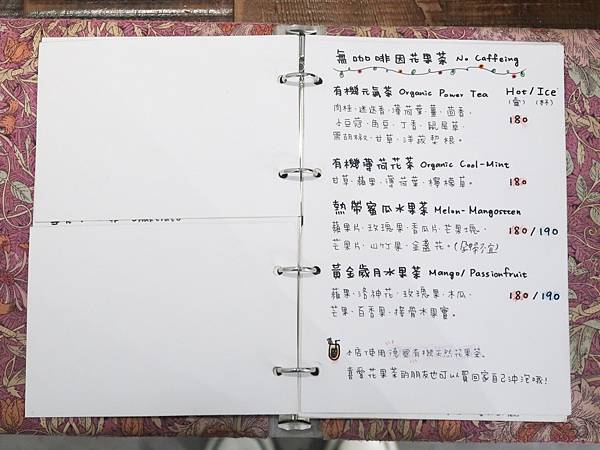 無咖啡因花果茶 No Caffeing
有機元氣茶 Organic Power Tea Hot/Ice
(壺) (杯)
肉桂、迷迭香、薄荷葉、薑、茴香、 180
小豆蔻、角豆、丁香、鼠尾草、
黑胡椒、甘草、洋菝契根。
有機薄荷花茶 Organic Cool-Mint
甘草、蘋果、薄荷葉、檸檬草。 180
熱帶蜜瓜水果茶 Melon-Mangostten
蘋果片、玫瑰果、香瓜片、芒果塊、 180/190
芒果片、山竹果、金盞花。(孕婦不宜)
黃金歲月水果茶 Mango/Passionfruit
蘋果、洛神花、玫瑰果、木瓜、 180/190
芒果、百香果、接骨木果實。
本店使用德國有機天然花果茶。
喜愛花果茶的朋友也可以買回家自己沖泡哦!